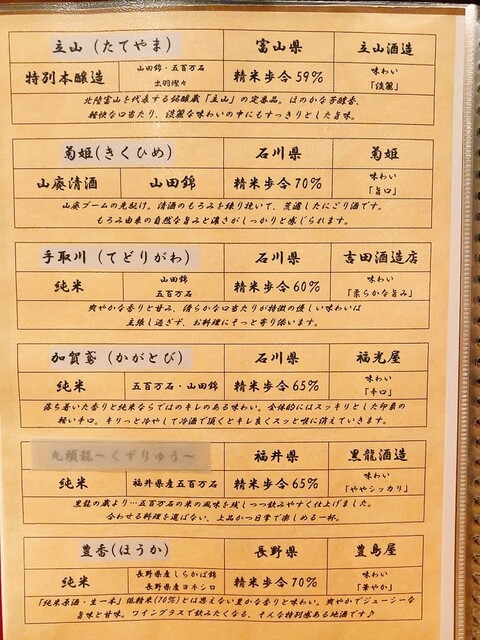 立山（たてやま） 富山県 立山酒造
特別本醸造 山田錦・五百万石 精米歩合59% 味わい
出羽燦々 「淡麗」
北陸富山を代表する銘醸蔵「立山」の定番品。ほのかな芳醇香、
軽快な口当たり、淡麗な味わいの中にもすっきりとした旨味。
菊姫(きくひめ) 石川県 菊姫
山廃清酒 山田錦 精米歩合70% 味わい
「旨口」
山廃ブームの先駆け。清酒のもろみを練り挽いて、荒濾したにごり酒です。
もろみ由来の自然な旨みと濃さがしっかりと感じられます。
手取川（てどりがわ） 石川県 吉田酒造店
純米 山田錦 精米歩合60% 味わい
五百万石 「柔らかな旨み」
爽やかな香りと甘み、清らかな口当たりが特徴の優しい味わいは
主張し過ぎず、お料理にそっと寄り添います。
加賀鳶（かがとび） 石川県 福光屋
純米 五百万石・山田錦 精米歩合65% 味わい
「辛口」
落ち着いた香りと純米ならではのキレのある味わい。全体的にはスッキリとした印象の
軽い辛口。キリっと冷やして冷酒で頂くとキレ良くスッと喉に消えていきます。
九頭龍〜くずりゅう〜 福井県 黒龍酒造
純米 福井県産五百万石 精米歩合65% 味わい
「ややシッカリ」
黒龍の蔵より…五百万石の米の風味を残しつつ飲みやすく仕上げました。
合わせる料理を選ばない、上品かつ日常で楽しめる一杯。
豊香(ほうか) 長野県 豊島屋
純米 長野県産しらかば錦 精米歩合70% 味わい
長野県産ヨネシロ 「華やか」
「純米原酒・生一本」低精米(70%)とは思えない豊かな香りと味わい。爽やかでジューシーな
旨味と甘味。ワイングラスで飲みたくなる、そんな特別感ある地酒です♪